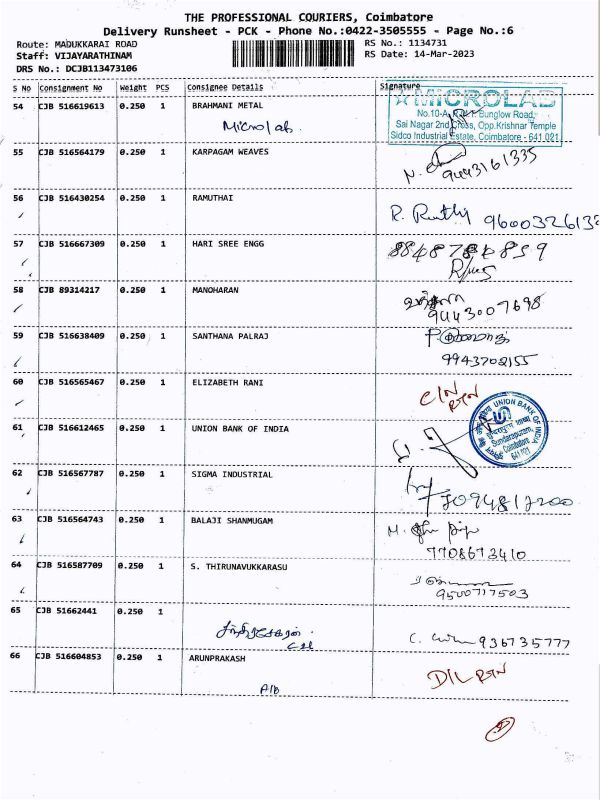 THE PROFESSIONAL COURIERS, Coimbatore
Delivery Runsheet - PCK - Phone No.:0422-3505555 - Page No.:6
Route: MADUKKARAI ROAD
RS No.: 1134731
Staff: VIJAYARATHINAM
RS Date: 14-Mar-2023
DRS No.: DCJB113473106
S No Consignment No Weight PCS Consignee Details Signature
54 CJB 516619613 0.250 1 BRAHMANI METAL
Microlab
MICROLAB
Sai Nagar 2nd Cross, Opp.Krishnar Temple
Sidco Industrial Estate, Coimbatore - 641 021
55 CJB 516564179 0.250 1 KARPAGAM WEAVES
9443161335
56 CJB 516430254 0.250 1 RAMUTHAI
R. Ruthi
57 CJB 516667309 0.250 1 HARI SREE ENGG
58 CJB 89314217 0.250 1 MANOHARAN
9443007698
59 CJB 516638409 0.250 1 SANTHANA PALRAJ
9943702155
60 CJB 516565467 0.250 1 ELIZABETH RANI
RTN
61 CJB 516612465 0.250 1 UNION BANK OF INDIA
UNION BANK OF INDIA
Sundarapuram,
Coimbatore
641 021
62 CJB 516567787 0.250 1 SIGMA INDUSTRIAL
63 CJB 516564743 0.250 1 BALAJI SHANMUGAM
7708673410
64 CJB 516587709 0.250 1 S. THIRUNAVUKKARASU
9500717503
65 CJB 51662441 0.250 1
சந்திரசேகரன்
936735777
66 CJB 516604853 0.250 1 ARUNPRAKASH
D/L RTN